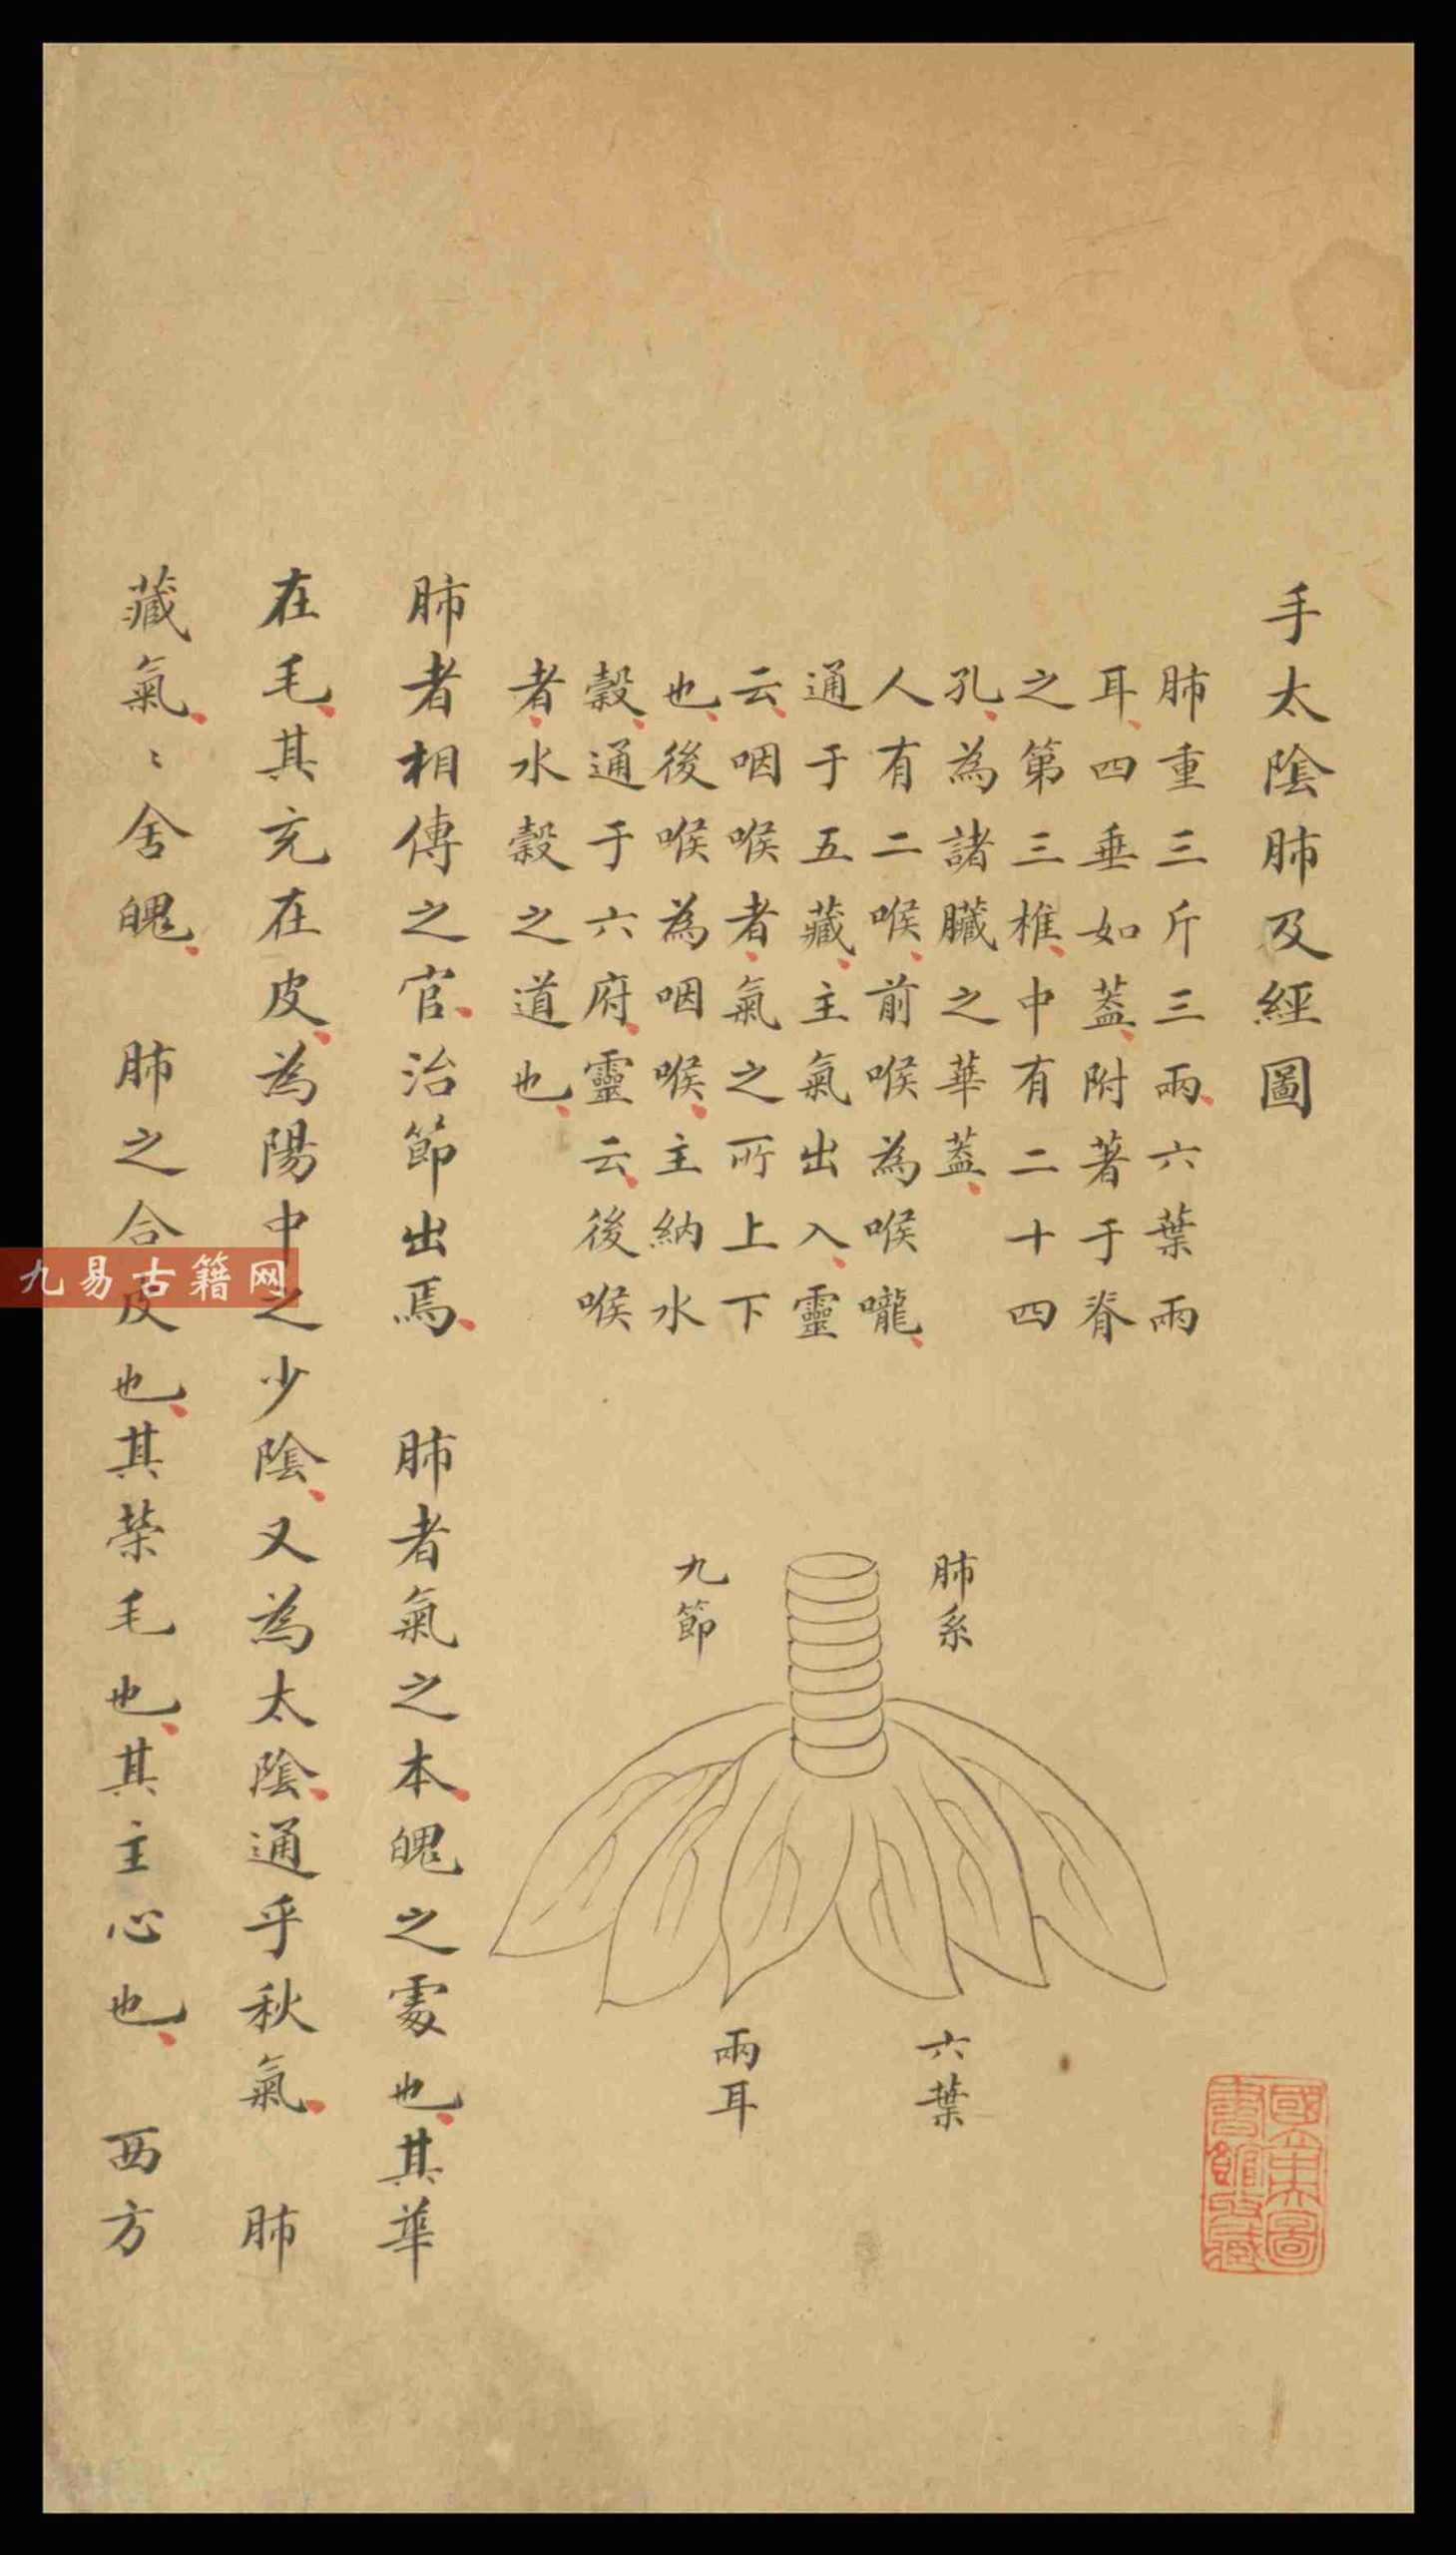 手太陰肺及經圖
肺重三斤三兩六葉兩
耳四垂如蓋附著于脊
之第三椎中有二十四
孔為諸臟之華蓋
人有二喉前喉為喉嚨
通于五藏主氣出入靈
云咽喉者氣之所上下
也後喉為咽喉主納水
穀通于六府靈云後喉
者水穀之道也
肺者相傳之官治節出焉 肺者氣之本魄之處也其華
在毛其充在皮為陽中之少陰又為太陰通乎秋氣 肺
藏氣〻舍魄 肺之合皮也其榮毛也其主心也 西方
肺系
九節
六葉
兩耳
國立圖
書館收藏
九易古籍网